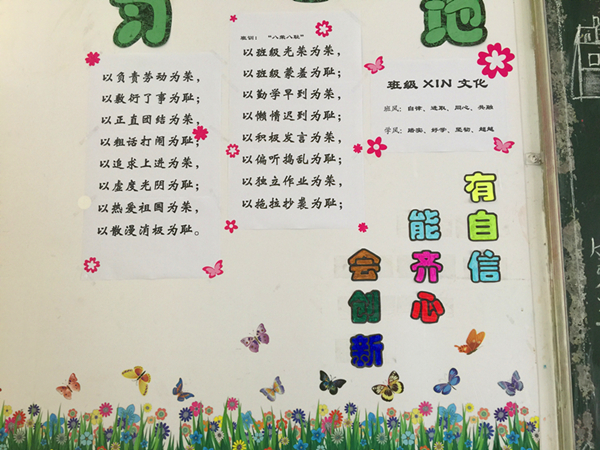 习
记
以负责劳动为荣,
以敷衍了事为耻;
以正直团结为荣,
以粗话打闹为耻;
以追求上进为荣,
以虚度光阴为耻;
以热爱祖国为荣,
以散漫消极为耻。
班训：“八荣八耻”
以班级光荣为荣,
以班级蒙羞为耻;
以勤学早到为荣,
以懒惰迟到为耻;
以积极发言为荣,
以偏听捣乱为耻;
以独立作业为荣,
以拖拉抄袭为耻;
班级 XIN 文化
班风：自律、进取、同心、共融
学风：踏实、好学、坚韧、超越
有自信
能齐心
会创新